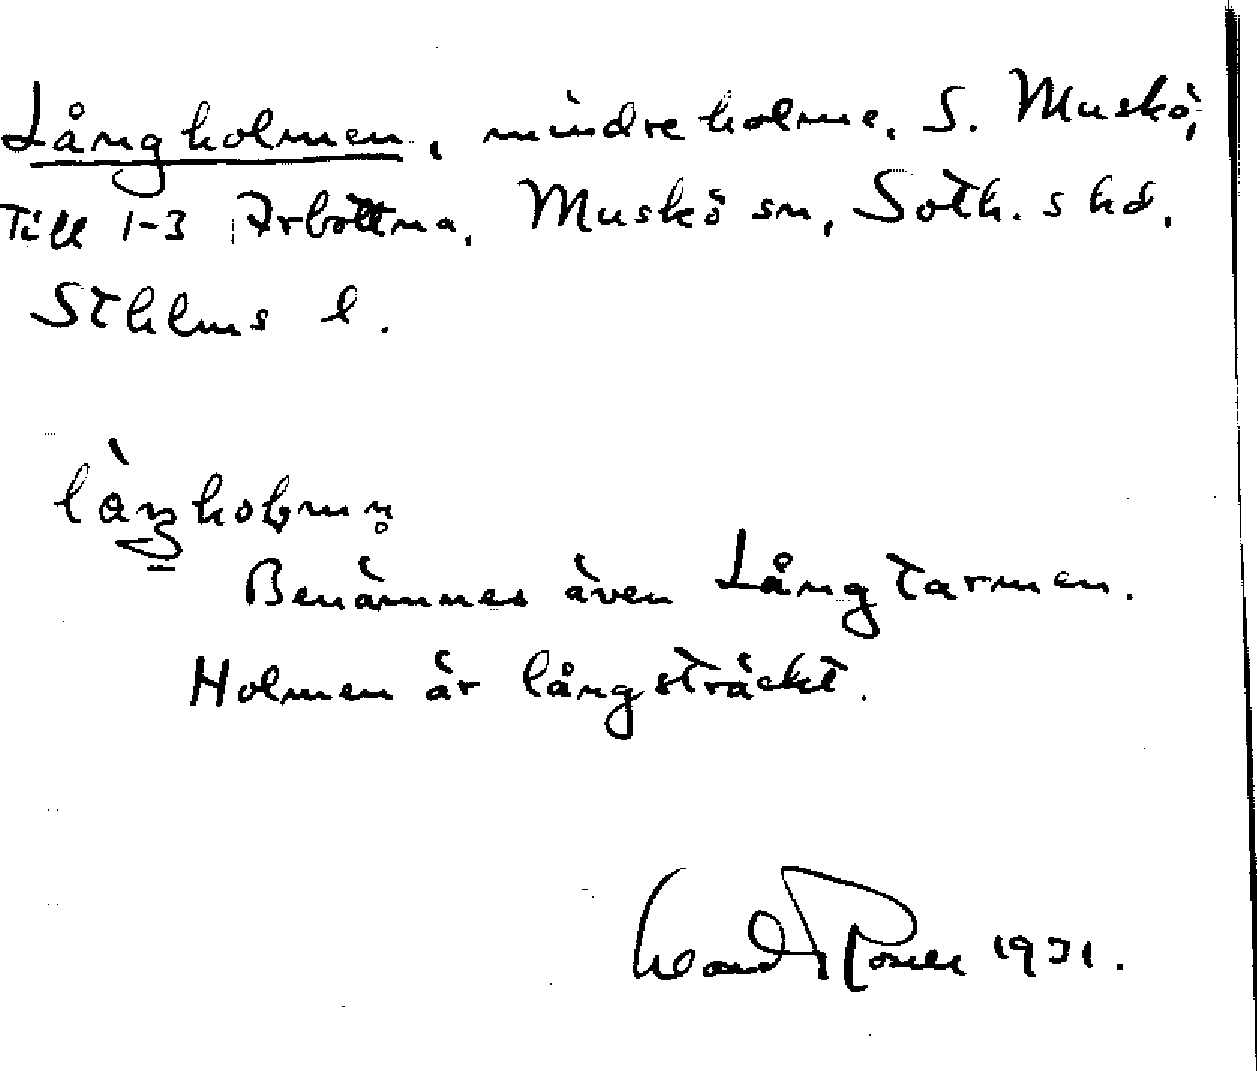 Långholmen, mindre holme, S. Muskö,
Till 1-3 Arbottna, Muskö sn, Soth. skd.
Sthlms l.
Benämnes även Långtarmen.
Holmen är långsträckt.
1931.